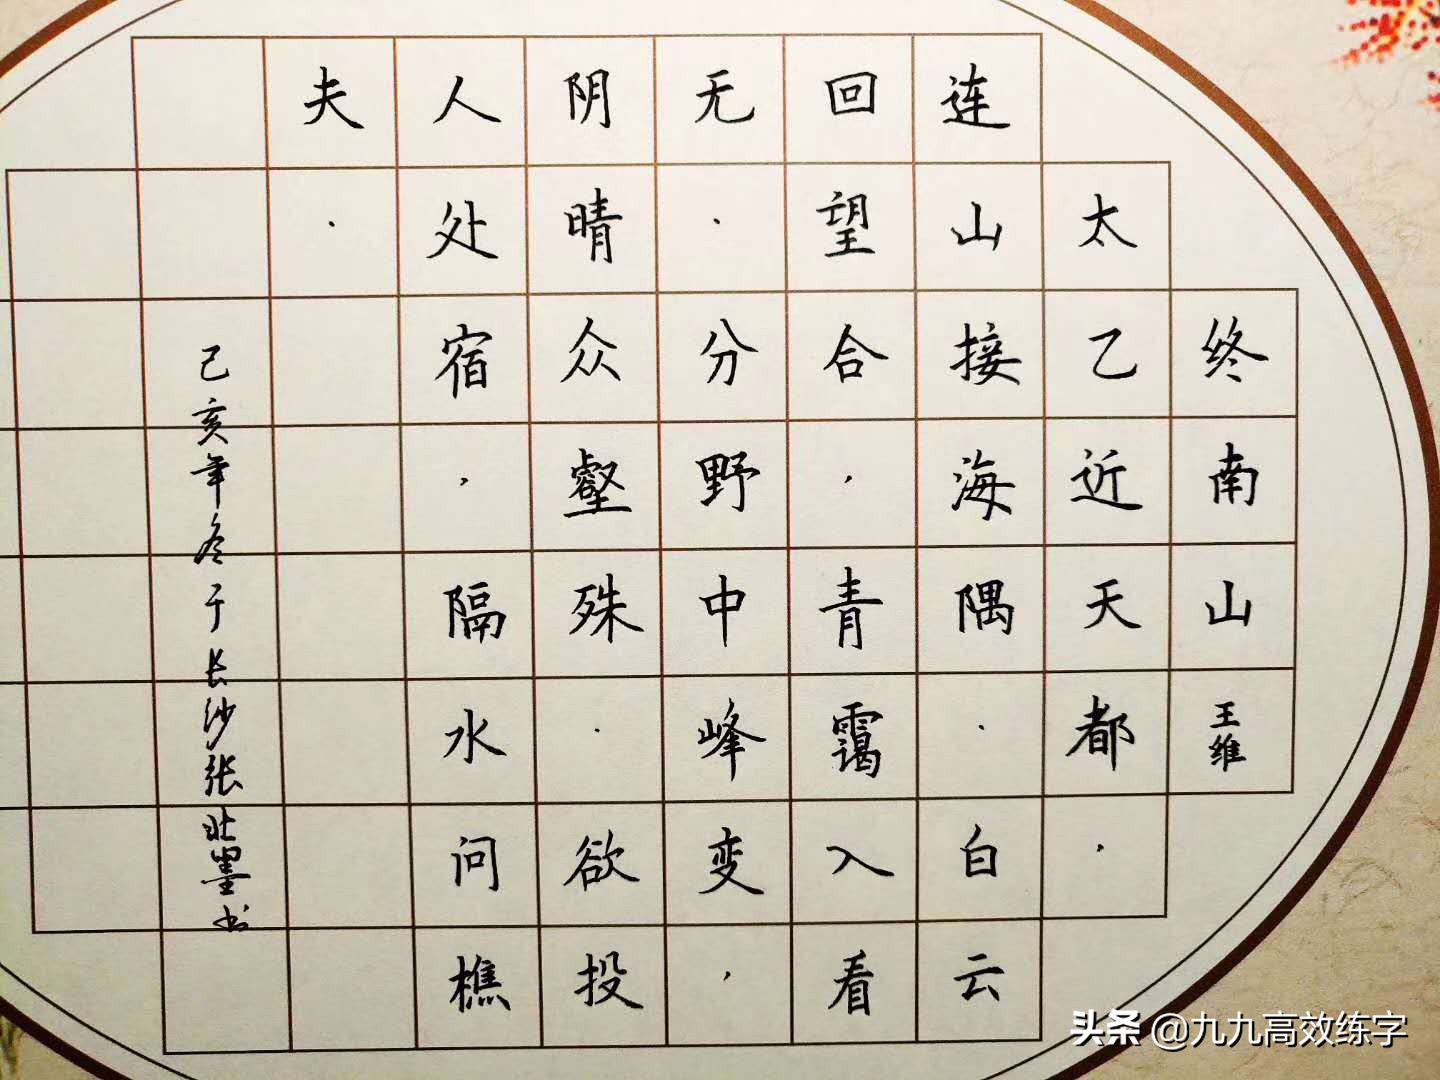 终南山 王维
太乙近天都，
连山接海隅。白云
回望合，青霭入看
无。分野中峰变，
阴晴众壑殊。欲投
人处宿，隔水问樵
夫。
己亥年冬于长沙张北墨书
头条 @九九高效练字